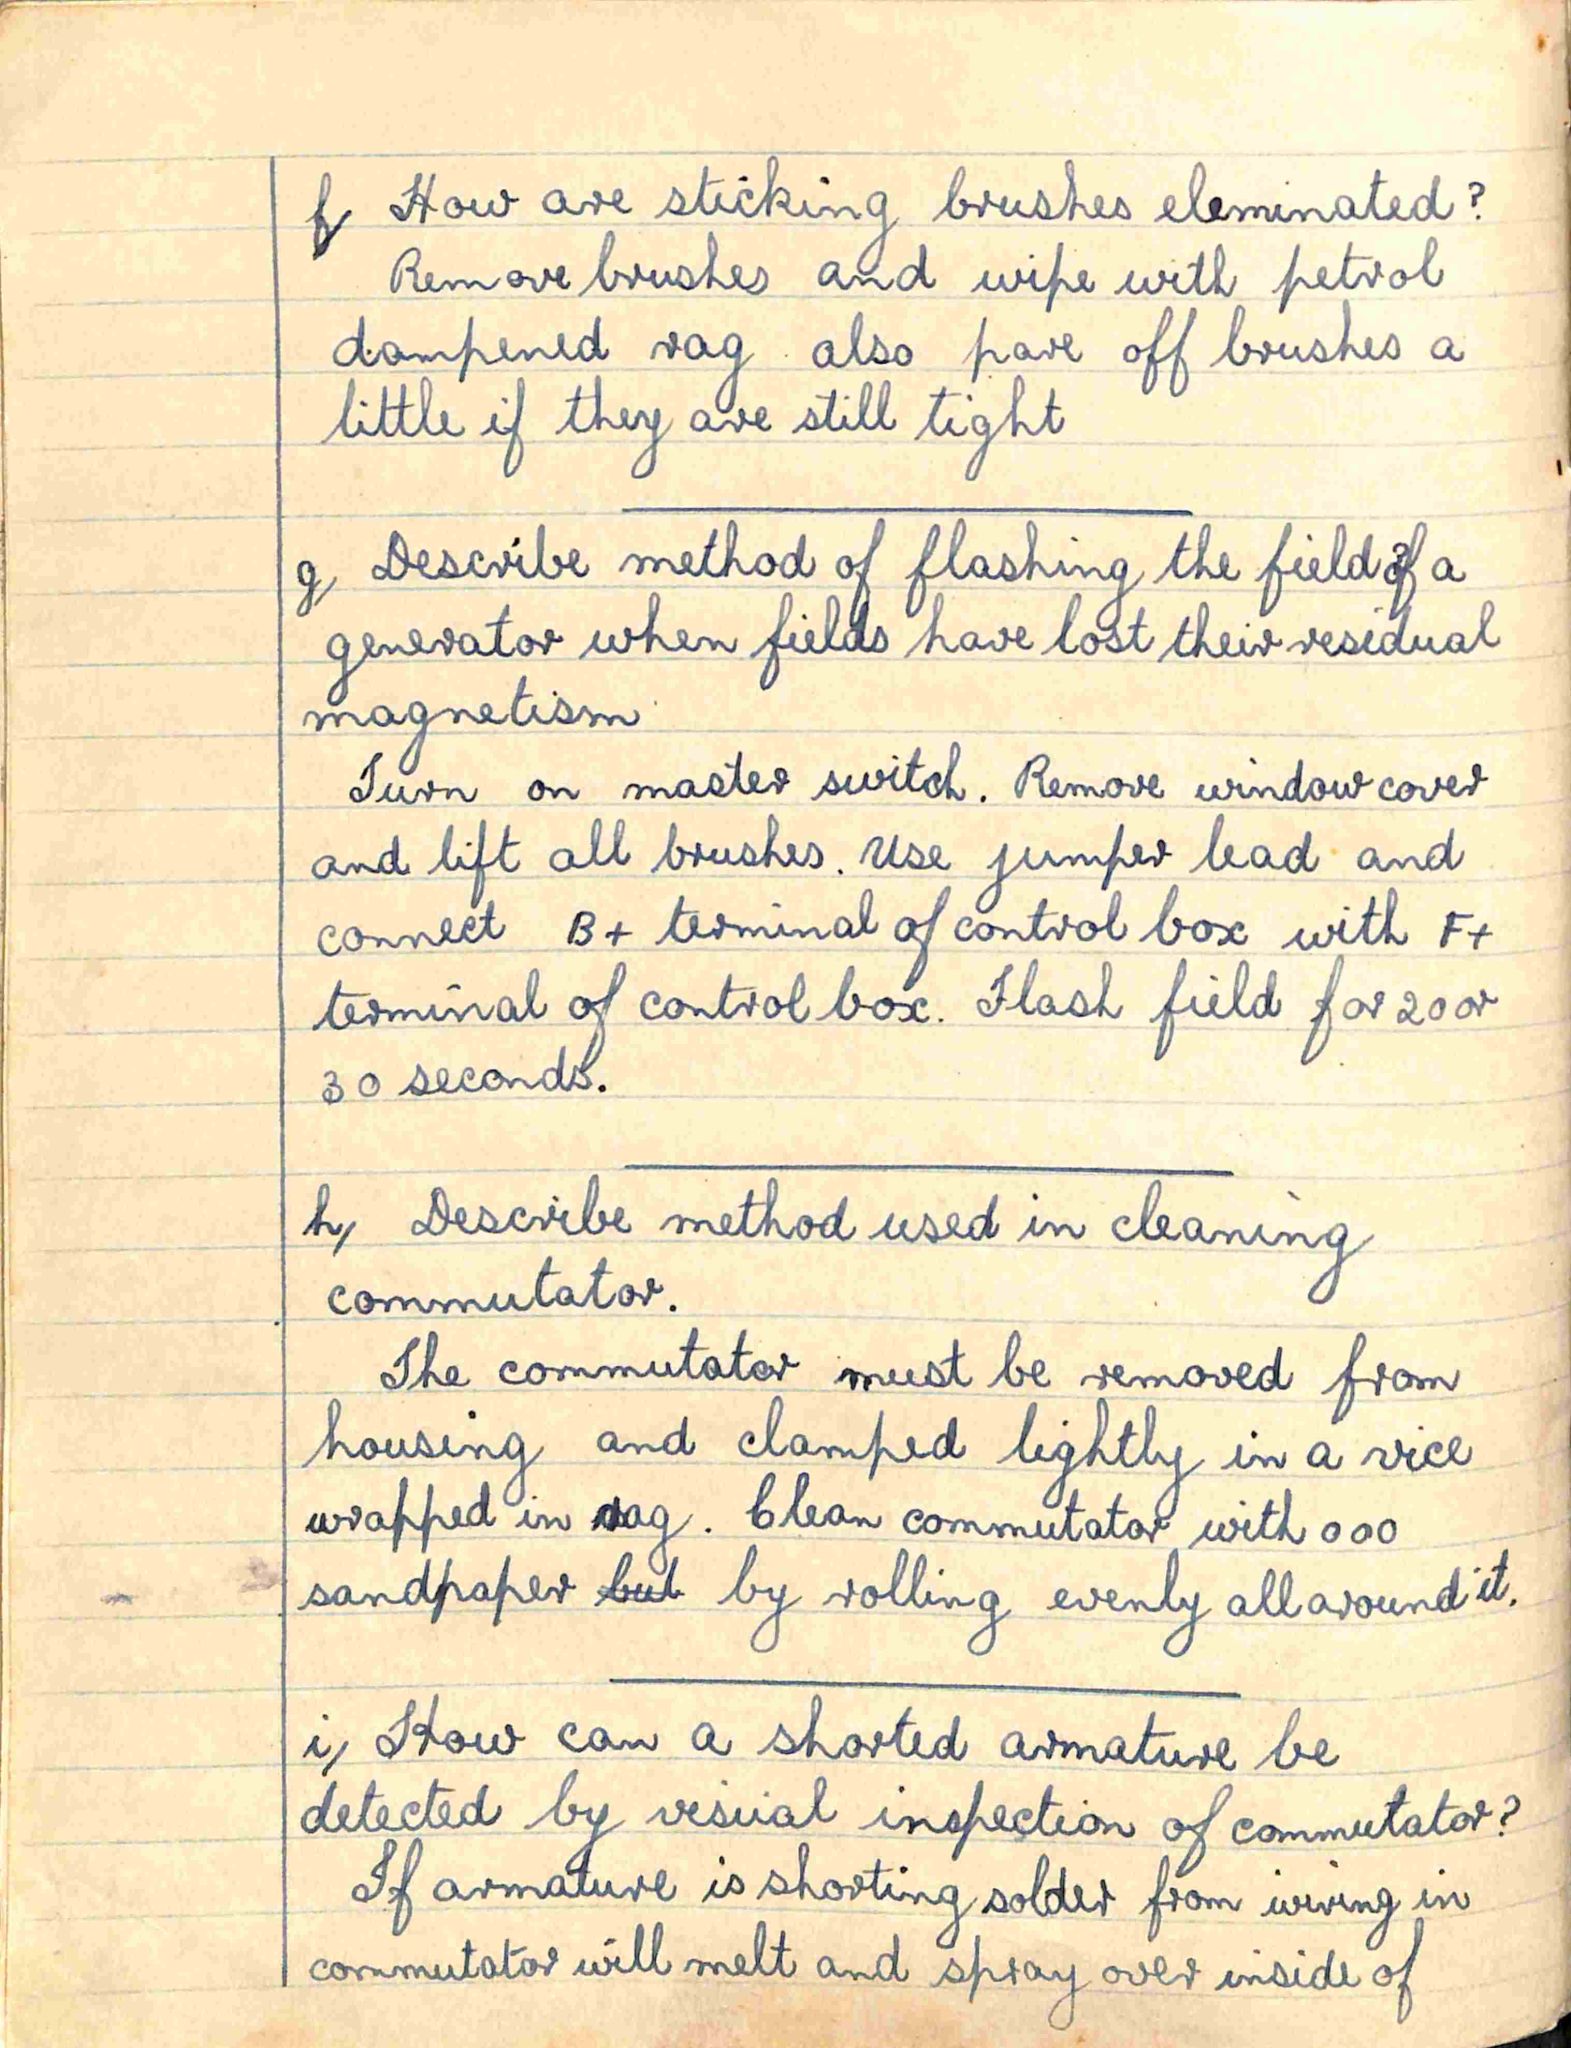 f, How are sticking brushes eleminated?
Remove brushes and wipe with petrol
dampened rag also pare off brushes a
little if they are still tight
g, Describe method of flashing the field of a
generator when fields have lost their residual
magnetism
Turn on master switch. Remove window cover
and lift all brushes. Use jumper lead and
connect B+ terminal of control box with F+
terminal of control box. Flash field for 20 or
30 seconds.
h, Describe method used in cleaning
commutator.
The commutator must be removed from
housing and clamped lightly in a vice
wrapped in rag. Clean commutator with 000
sandpaper but by rolling evenly all around it.
i, How can a shorted armature be
detected by visual inspection of commutator?
If armature is shorting solder from wiring in
commutator will melt and spray over inside of